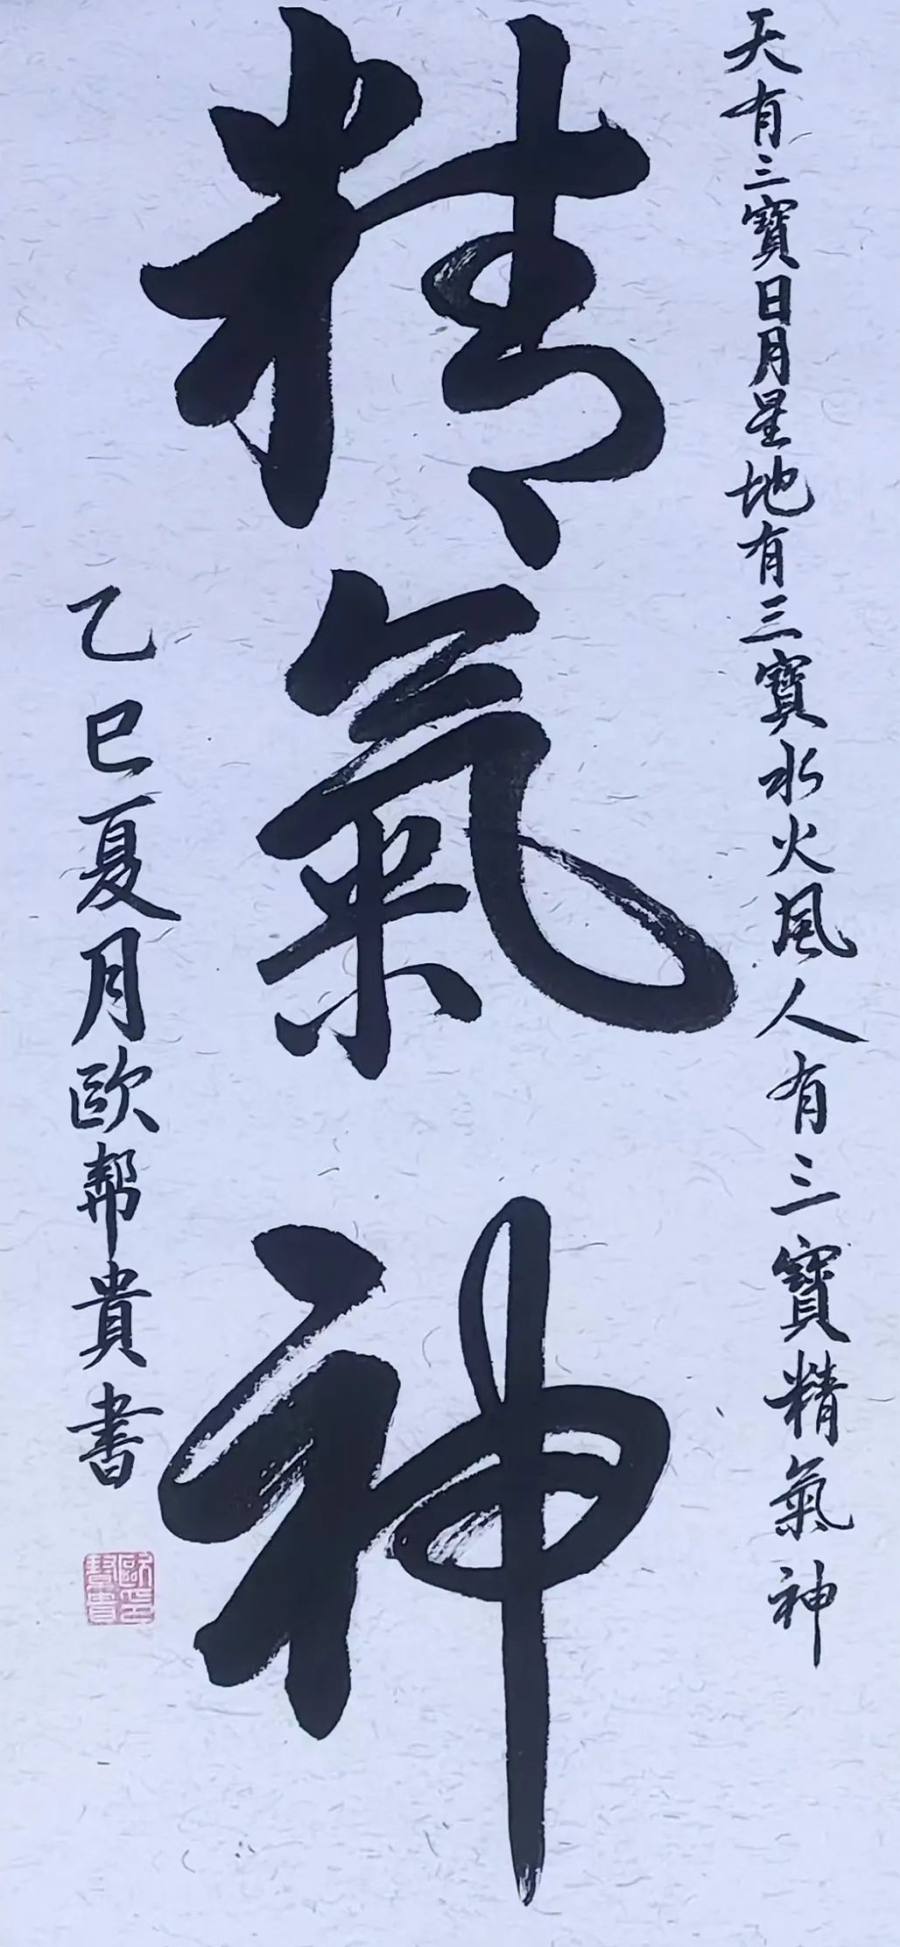 天有三寶日月星地有三寶水火風人有三寶精氣神
精氣神
乙巳夏月歐幫貴書